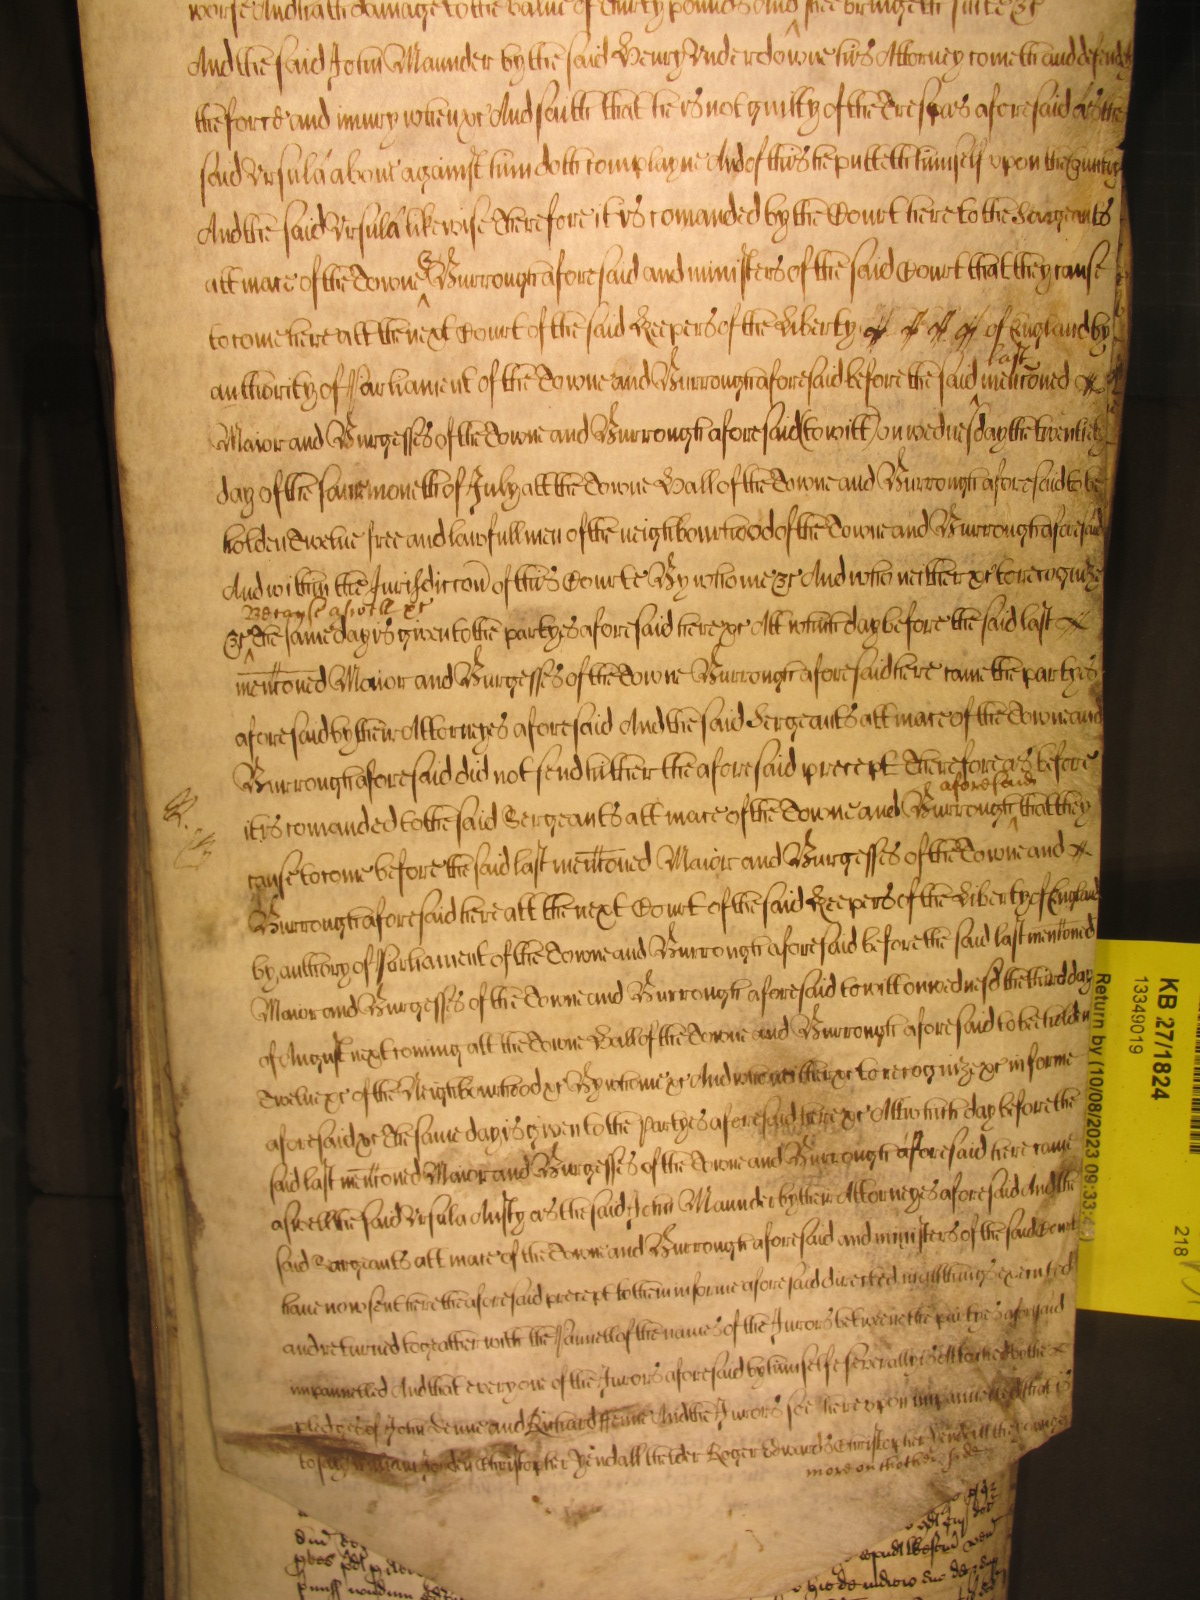 worse And hath damage to the value of thirty pounds And shee bringeth suite &c
And the said John Maunder by the said Henry Underdowne his Attorney cometh and defendeth
the force and iniury when &c And saith that he is not guilty of the Trespas aforesaid as the
said Ursula above against him doth complayne And of this he putteth himself upon the Cuntry
And the said Ursula likewise Therefore it is comanded by the Court here to the Sargeants
att mace of the Towne & Burrough aforesaid and ministers of the said Court that they cause
to come here att the next Court of the said Keepers of the Liberty of England by
authority of Parliament of the Towne and Burrough aforesaid before the said last mencōned
Maior and Burgesses of the Towne and Burrough aforesaid (to witt) on wednesday the twentieth
day of the same moneth of July att the Towne Hall of the Towne and Burrough aforesaid to be
holden Twelve free and lawfull men of the neighbourhood of the Towne and Burrough aforesaid
And within the Jurisdiccōn of this Courte By whome &c And who neither &c to recognize
&c Because aswell &c The same day is given to the partyes aforesaid here &c Att which day before the said last
mencōned Maior and Burgesses of the Towne Burrough aforesaid here came the partyes
aforesaid by their Attorneyes aforesaid And the said Sergeants att mace of the Towne and
Burrough aforesaid did not send hither the aforesaid precept Therefore as before
it is comanded to the said Sergeants att mace of the Towne and Burrough aforesaid that they
cause to come before the said last mencōned Maior and Burgesses of the Towne and
Burrough aforesaid here att the next Court of the said Keepers of the Liberty of England
by authory of Parliament of the Towne and Burrough aforesaid before the said last mencōned
Maior and Burgesses of the Towne and Burrough aforesaid to witt on wednesd the third day
of August next coming att the Towne Hall of the Towne and Burrough aforesaid to be holden
Twelve &c of the Neighbourhood &c By whome &c And who neither &c to recognize &c in forme
aforesaid &c The same day is given to the Partyes aforesaid here &c Att which day before the
said last mencōned Maior and Burgesses of the Towne and Burrough aforesaid here came
aswell the said Ursula Ansty as the said John Maunder by their Attorneyes aforesaid And the
said Sargeants att mace of the Towne and Burrough aforesaid and ministers of the said Court
have now sent here the aforesaid precept to them in forme aforesaid directed in all things executed
and returned together with the Pannell of the names of the Jurors betweene the partyes aforesaid
impannelled And that every one of the Jurors aforesaid by himselfe severally is Attached by the
pledges of John Denne and Richard Fenne And the Jurors soe hereupon impannelled that is
to say William Christopher Yendall the elder Roger Edwards Christopher Yendall the younger
more on thother side
KB 27/1824
13349019
218
Return by (10/08/2023 09:33:4